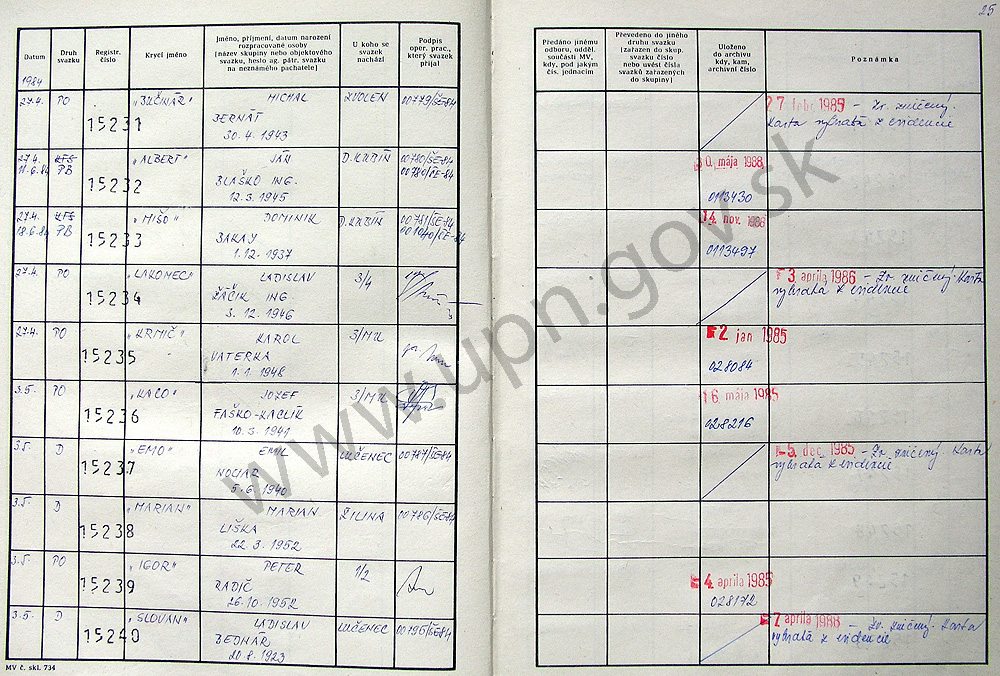 25
Datum
Druh svazku
Registr. číslo
Krycí jméno
Jméno, příjmení, datum narození rozpracované osoby
(název skupiny nebo objektového svazku, heslo ag. pátr. svazku na neznámého pachatele)
U koho se svazek nachází
Podpis oper. prac., který svazek přijal
Předáno jinému odboru, odděl. součásti MV, kdy, pod jakým čís. jednacím
Převedeno do jiného druhu svazku (zařazen do skup. svazku číslo nebo uvést čísla svazků zařazených do skupiny)
Uloženo do archivu kdy, kam, archivní číslo
Poznámka
1984
27.4. PO 15231 "BUČINÁR" MICHAL ZVOLEN 00779/ŠE-84
BERNÁT
30. 4. 1943
27 febr 1985 – Zv. zničený.
Karta vybratá z evidencie
27.4. KTS "ALBERT" JÁN D. KUBÍN 00780/ŠE-84
PB 15232 BLAŠKO ING.
12.3.1945
mája 1988
0113430
27.4. KTS "MIŠO" DOMINIK D. KUBÍN 00781/ŠE-84
18.6.84 PB 15233 BAKAY
1.12.1937
14. nov. 1986
0113497
27.4. PO 15234 "LAKOMEC" LADISLAV 3/4
ŽÁČIK ING
3. 12. 1946
3 apríla 1986 – Zv. zničený. Karta
vybratá z evidencie
27.4. PO 15235 "KRMIČ" KAROL
VATERKA
1.1.1946
2 jan 1985
028084
3.5. PO 15236 "KACO" JOZEF
FAŠKO-KACLÍK
10.3.1941
16. mája 1985
028216
3.5. D 15237 "EMO" EMIL LUČENEC 00787/ŠE-84
NOCIAR
5.6.1940
5. dec. 1985 – Zv. zničený. Karta
vybratá z evidencie
3.5. D 15238 "MARIAN" MARIAN ŽILINA 00786/ŠE-84
LIŠKA
22.3.1952
3.5. PO 15239 "IGOR" PETER 1/2
RADIČ
26.10.1952
4. apríla 1985
028172
3.5. D 15240 "SLOVAN" LADISLAV LUČENEC 00795/ŠE-84
BEDNÁR
20.8.1923
7 apríla 1988 – Zv. zničený. Karta
vybratá z evidencie
MV č. skl. 734
www.upn.gov.sk